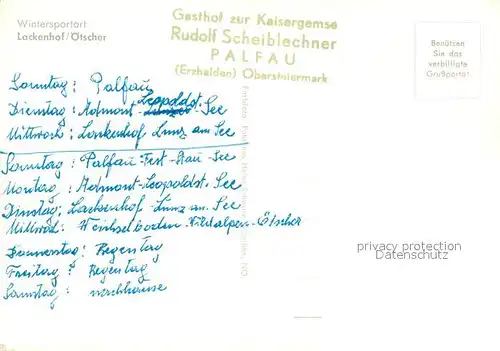 Wintersportort
Lackenhof/Ötscher
Gasthof zur Kaisergemse
Rudolf Scheiblechner
PALFAU
(Erzhalden) Obersteiermark
Benützen
Sie das
verbilligte
Grußporto!
Sonntag : Palfau
Dienstag : Admont - Leopoldst. See
Mittwoch : Lackenhof Lunz am See
Sonntag : Palfau - Est - Stau - See
Montag : Admont - Leopoldst. See
Dinstag : Lackenhof - Lunz am See
Mittwoch : Weichselboden - Wildalpen - Ötscher
Donnerstag : Regentag
Freitag : Regentag
Samstag : nachhause
privacy protection
Datenschutz